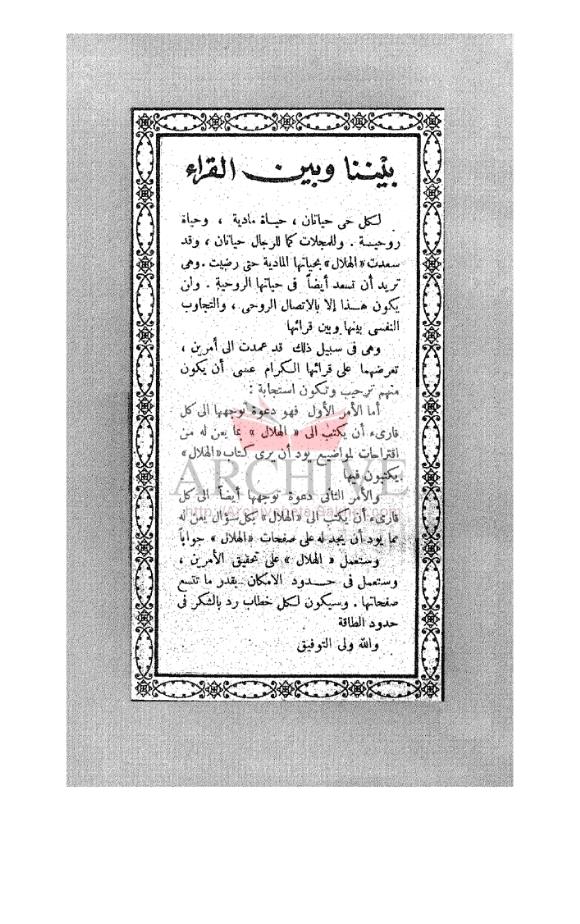 بيننا وبين القراء
لكل حى حياتان ، حياة مادية ، وحياة
روحية . وللمجلات كما للرجال حياتان ، وقد
سعدت «الهلال» بحياتها المادية حتى رضيت . وهى
تريد أن تسعد أيضاً فى حياتها الروحية . ولن
يكون هذا إلا بالاتصال الروحى ، والتجاوب
النفسى بينها وبين قرائها
وهى فى سبيل ذلك قد عمدت الى أمرين ،
تعرضهما على قرائها الكرام عسى أن يكون
منهم ترحيب وتكون استجابة :
أما الأمر الأول فهو دعوة نوجهها الى كل
قارىء أن يكتب الى « الهلال » بما يعن له من
اقتراحات لمواضيع يود أن يرى كتاب «الهلال»
يكتبون فيها
ARCHIVE
والأمر الثانى دعوة نوجهها أيضاً الى كل
قارىء أن يكتب الى «الهلال» بكل سؤال يعن له
مما يود أن يجد له على صفحات «الهلال» جواباً
وستعمل « الهلال » على تحقيق الأمرين ،
وستعمل فى حدود الامكان بقدر ما تتسع
صفحاتها . وسيكون لكل خطاب رد بالشكر فى
حدود الطاقة
والله ولى التوفيق